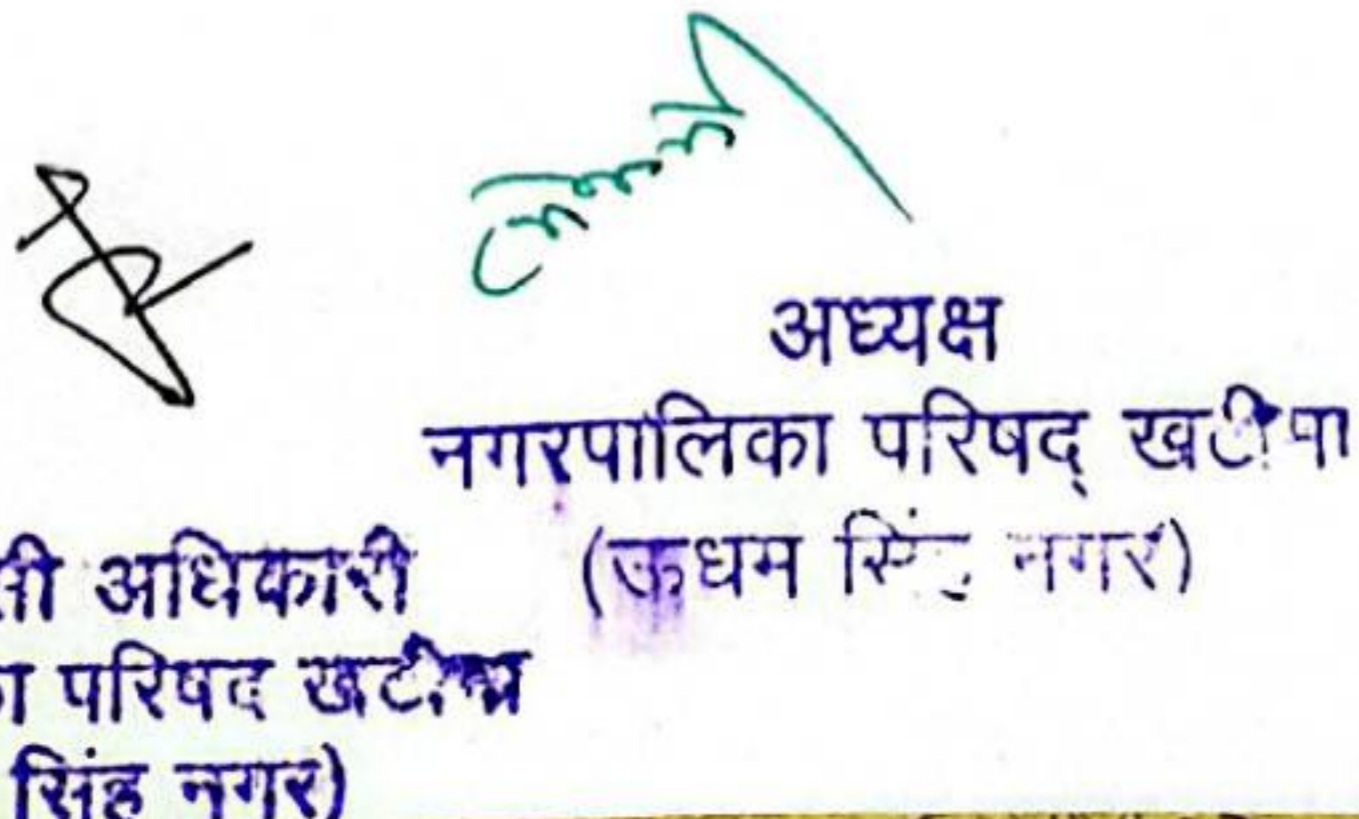 अध्यक्ष
नगरपालिका परिषद् खटीमा
(ऊधम सिंह नगर)
अधिकारी
परिषद खटीमा
सिंह नगर)